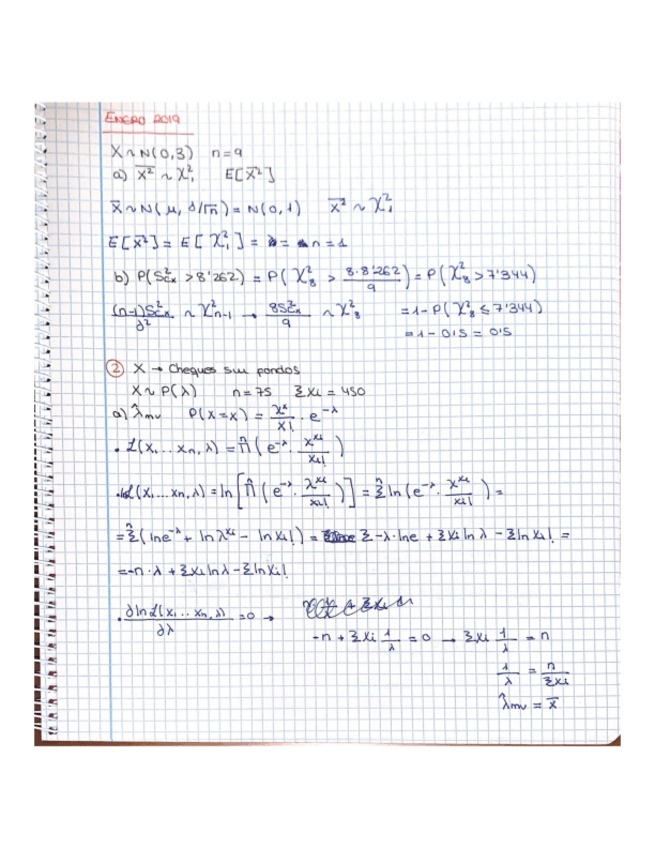 ENERO 2019
X ~ N(0,3) n=9
a) X̄² ~ χ²₁ E[X̄²]
X̄ ~ N(μ, σ/√n) = N(0,1) X̄² ~ χ²₁
E[X̄²] = E[χ²₁] = n = 1
b) P(S²cx > 8'262) = P(χ²₈ > 8·8'262/9) = P(χ²₈ > 7'344)
(n-1)S²cx/σ² ~ χ²n-1 → 8S²cx/9 ~ χ²₈ = 1 - P(χ²₈ ≤ 7'344)
= 1 - 0'5 = 0'5
② X → Cheques sin fondos
X ~ P(λ) n = 75 Σxi = 450
a) λ̂mv P(X=x) = λˣ/x! · e^-λ
· L(x₁...xn, λ) = Π(e^-λ · λ^xi/xi!)
· lnL(x₁...xn, λ) = ln[Π(e^-λ · λ^xi/xi!)] = Σ ln(e^-λ · λ^xi/xi!) =
= Σ(ln e^-λ + ln λ^xi - ln xi!) = Σ -λ·ln e + Σxi ln λ - Σ ln xi! =
= -n·λ + Σxi ln λ - Σ ln xi!
· ∂lnL(x₁...xn, λ)/∂λ = 0 →
-n + Σxi 1/λ = 0 → Σxi 1/λ = n
1/λ = n/Σxi
λ̂mv = x̄